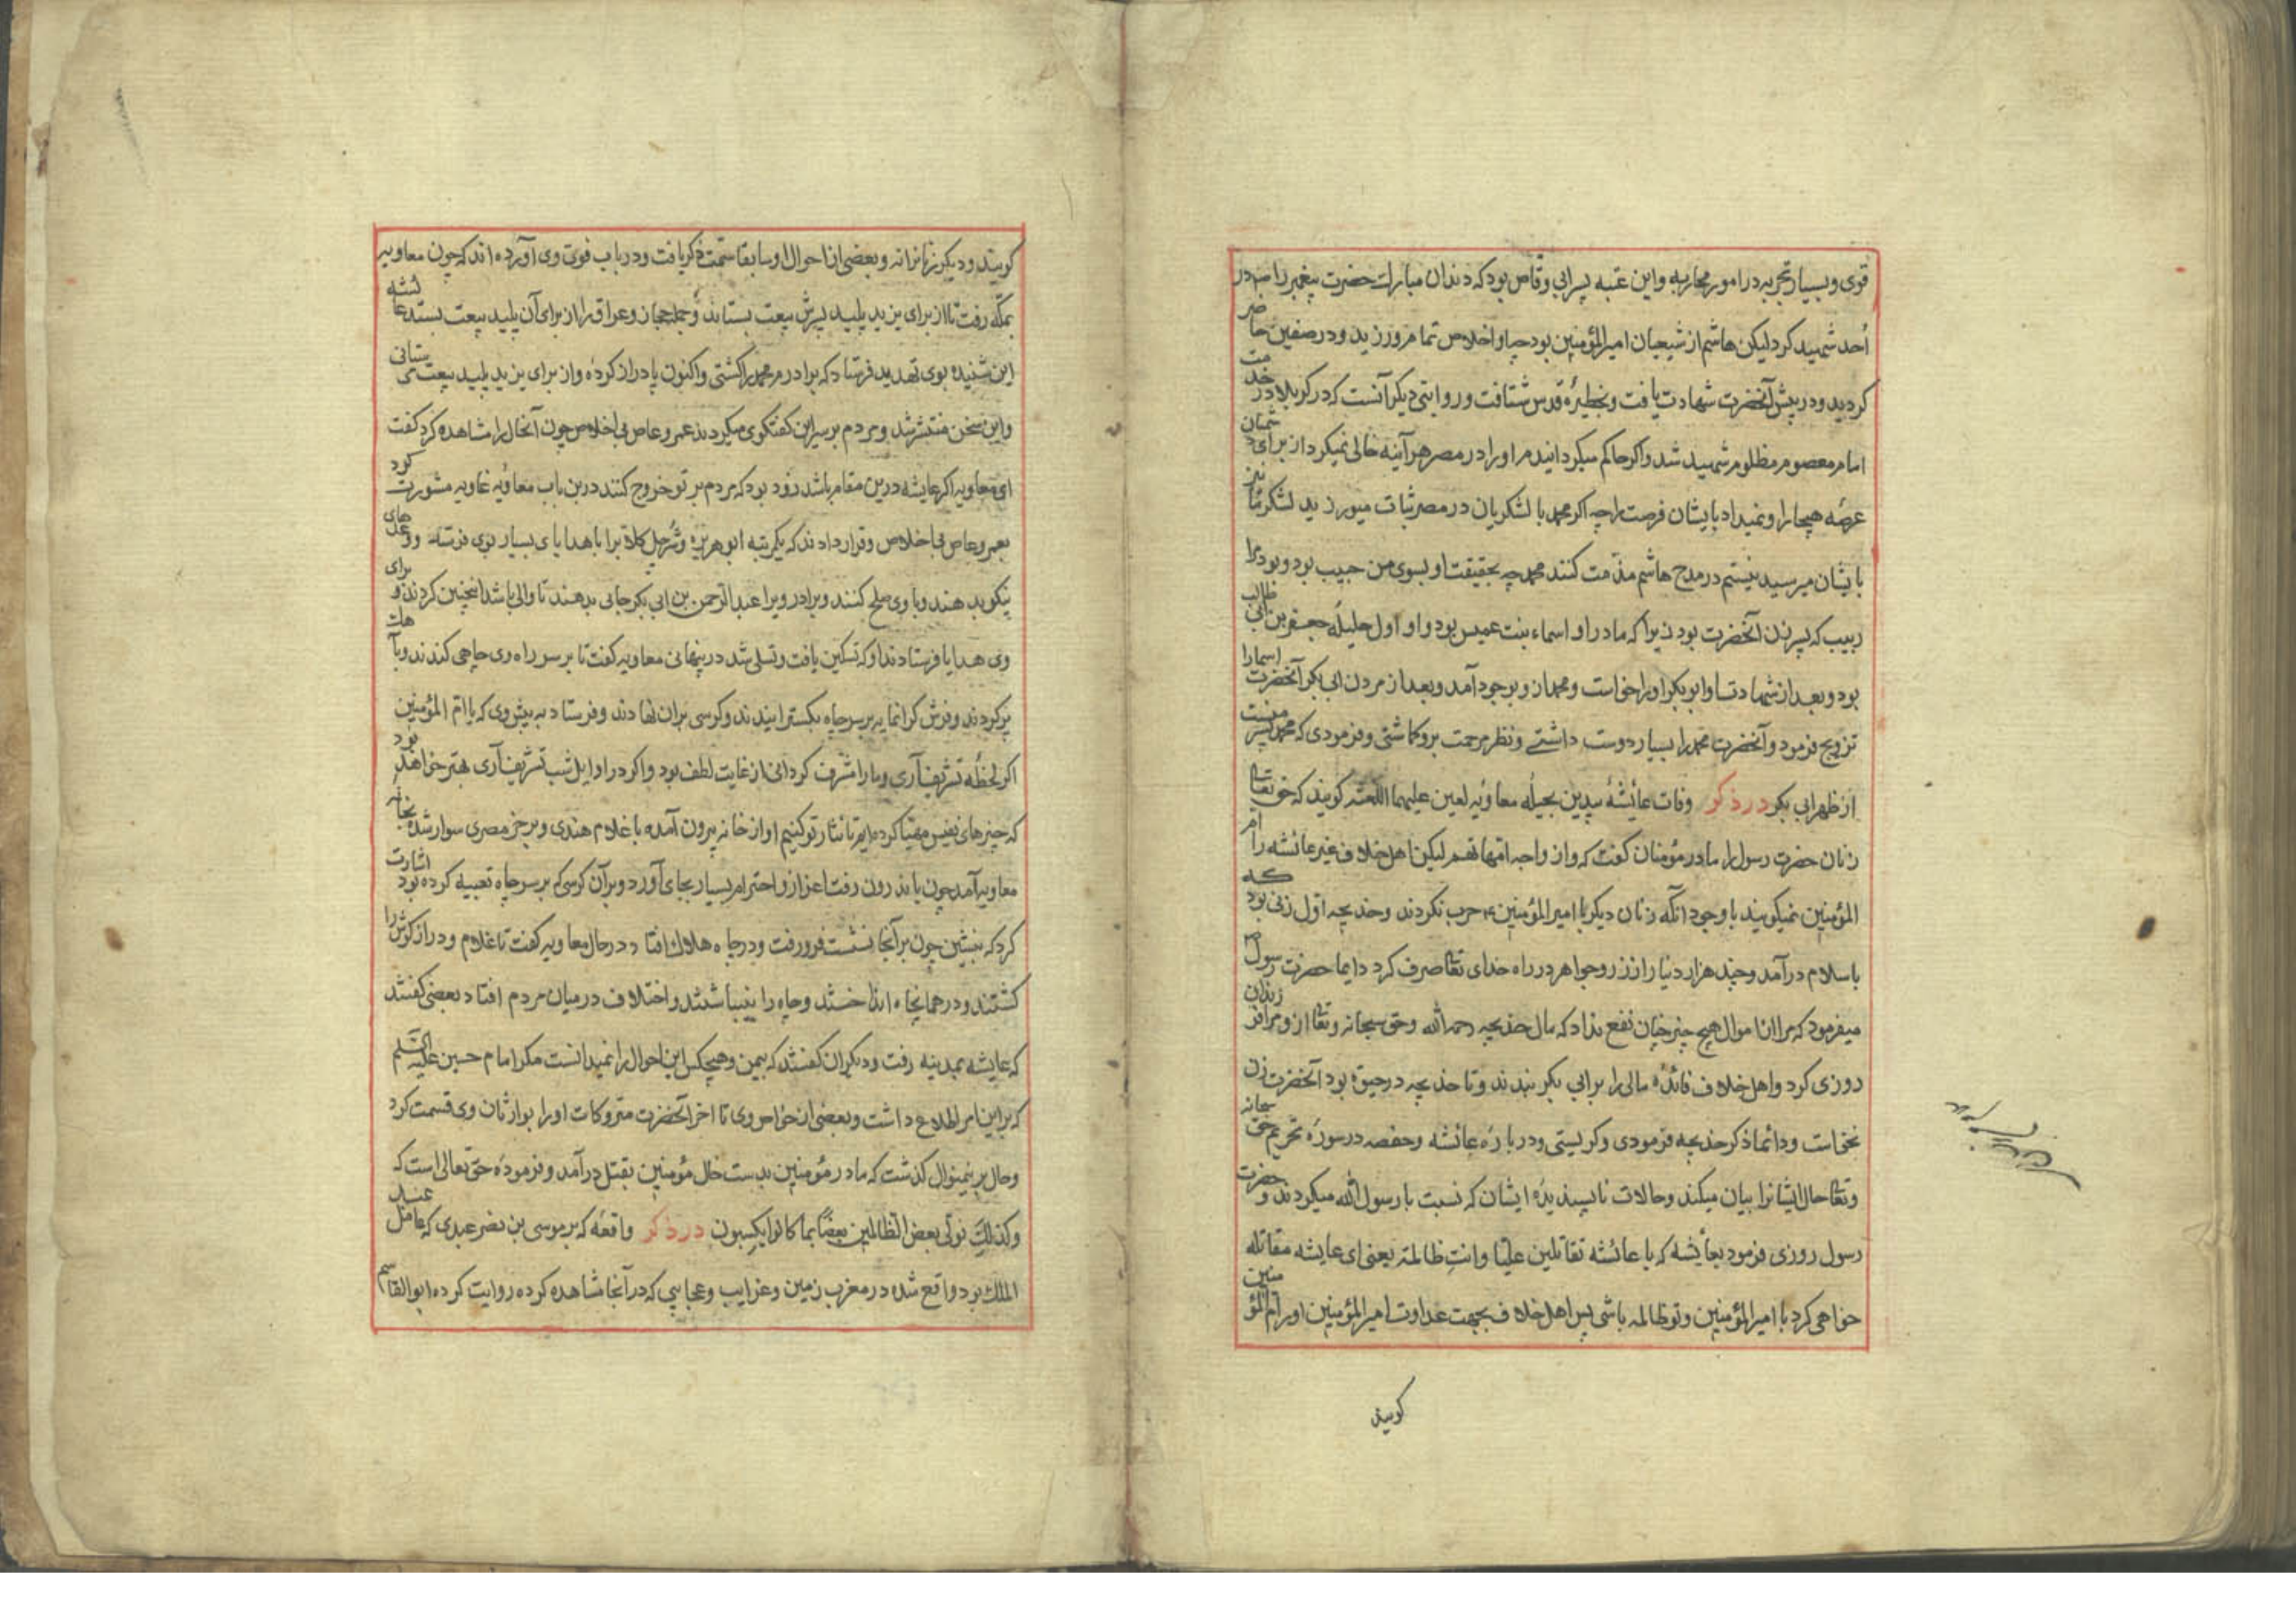 قوی و بسیار تجربه در امور محاربه و این عتبه پسر ابی وقاص بود که دندان مبارک حضرت پیغمبر را ص در
اُحد شهید کرد لیکن هاشم از شیعیان امیر المؤمنین بود چه او اخلاص تمام ورزید و در صفین حاضر
کردید و در پیش آنحضرت شهادت یافت و بحظیرهٔ قدس شتافت و روایتی دیگر آنست که در کربلا در خدمت
امام معصوم مظلوم شهید شد و اکر حاکم میکردانیدم او را در مصر هر آینه خالی نمیکرد از برای دشمنان
عرصه هیجا را و نمیداد بایشان فرصت را چه اکر محمد با لشکریان در مصر ثبات میورزید لشکر ما نیز
بایشان میرسید نیستم در مدح هاشم مذمت کنند محمد چه بحقیقت او بسوی من حبیب بود و بود مرا
ربیب که پسر زن آنحضرت بود زیرا که مادر او اسماء بنت عمیس بود و او اول حلیلهٔ جعفر بن ابی طالب
بود و بعد از شهادت او ابوبکر او را خواست و محمد از و بوجود آمد و بعد از مردن ابی بکر آنحضرت اسما را
تزویج فرمود و آنحضرت محمد را بسیار دوست داشتی و نظر مرحمت برو کماشتی و فرمودی که محمد پسر منست
از ظهر ابی بکر در ذکر وفات عائشهٔ بیدین بحیلهٔ معاویه لعین علیهما اللعنه کویند که حق تعالی
زنان حضرت رسول را مادر مؤمنان کفت که و ازواجه امهاتهم لیکن اهل خلاف غیر عائشه را ام
المؤمنین نمیکویند با وجود آنکه زنان دیکر با امیر المؤمنین ع حرب نکردند و خدیجه اول زنی بود که
باسلام درآمد و چند هزار دنیا را از زر و جواهر در راه خدای تعالی صرف کرد دایما حضرت رسول ص
میفرمود که مرا از اموال هیچ چیز چنان نفع نداد که مال خدیجه رحمه الله و حق سبحانه و تعالی از و مرا فرزندان
روزی کرد و اهل خلاف فائدهٔ مالی را بر ابی بکر بندند و تا خدیجه در حیوة بود آنحضرت زن
نخواست و دائما ذکر خدیجه فرمودی و کریستی و در بارهٔ عائشه و حفصه در سورهٔ تحریم حق سبحانه
و تعالی حال ایشانرا بیان میکند و حالات ناپسندیدهٔ ایشان که نسبت با رسول الله میکردند و حضرت
رسول روزی فرمود بعائشه که یا عائشه تقاتلین علیا و انت ظالمة یعنی ای عایشه مقاتله
خواهی کرد با امیر المؤمنین و تو ظالمه باشی پس اهل خلاف بجهت عداوت امیر المؤمنین او را ام المؤمنین
کویند
کویند و دیکر زنانرا نه و بعضی از احوال او سابقا سمت ذکر یافت و در باب فوت وی آورده اند که چون معاویه
بمکه رفت تا از برای یزید پلید پسرش بیعت بستاند و جمله حجاز و عراق را از برای آن پلید بیعت بستد عائشه
این شنیده بوی تهدید فرستاد که برادرم محمد را کشتی و اکنون پا دراز کرده و از برای یزید پلید بیعت می ستانی
و این سخن منتشر شد و مردم بر سر این کفتکوی میکردند عمرو عاص بی اخلاص چون آنحال را مشاهده کرد کفت
ای معاویه اکر عایشه درین مقام باشد زود بود که مردم بر تو خروج کنند درین باب معاویه غاویه مشورت کرد
بعمرو عاص بی اخلاص و قرار دادند که یکمرتبه ابو هریره و شُرحبیل کلاة برا با هدایای بسیار بوی فرستد و وعدهای
نیکو بدهند و با وی صلح کنند و برادر ویرا عبد الرحمن بن ابی بکر جائی بدهند تا والی باشد انچنین کردند و برای
وی هدایا فرستادند او که تسکین یافت و تسلی شد در پنهانی معاویه کفت تا بر سر راه وی چاهی کندند و بآهک
پر کردند و فرش کرانمایه بر سر چاه بکسترانیدند و کرسی بران نهادند و فرستاد به پیش وی که یا ام المؤمنین
اکر لحظهٔ تشریف آری و ما را مشرف کردانی از غایت لطف بود و اکر در اوایل شب تشریف آری بهتر خواهد بود
که چیزهای نفیس مهیا کرده ایم تا نثار تو کنیم او از خانه بیرون آمده با غلام هندی و بر خر مصری سوار شده بخانهٔ
معاویه آمد چون باندرون رفت اعزاز و احترام بسیار بجای آورد و بر آن کرسی که بر سر چاه تعبیه کرده بود اشارت
کرد که بنشین چون بر آنجا نشست فرو رفت و در چاه هلاک افتاد در حال معاویه کفت تا غلام و دراز کوش را
کشتند و در همانچاه انداختند و چاه را بینباشتند و اختلاف در میان مردم افتاد بعضی کفتند
که عایشه بمدینه رفت و دیکران کفتند که بیمن و هیچکس این احوال را نمیدانست مکر امام حسین علیه السلم
که بر این امر اطلاع داشت و بعضی از خواص وی تا اخر آنحضرت متروکات او را بوارثان وی قسمت کرد
و حال برینمنوال کذشت که مادر مؤمنین بدست خال مؤمنین بقتل درآمد و فرمودهٔ حق تعالی است که
و کذلک نولی بعض الظالمین بعضا بما کانوا یکسبون در ذکر واقعهٔ که بر موسی بن نصر عبدی که عامل عبد
الملک بود واقع شده در مغرب زمین و غرایب و عجایبی که در آنجا مشاهده کرده روایت کرده ابو القاسم